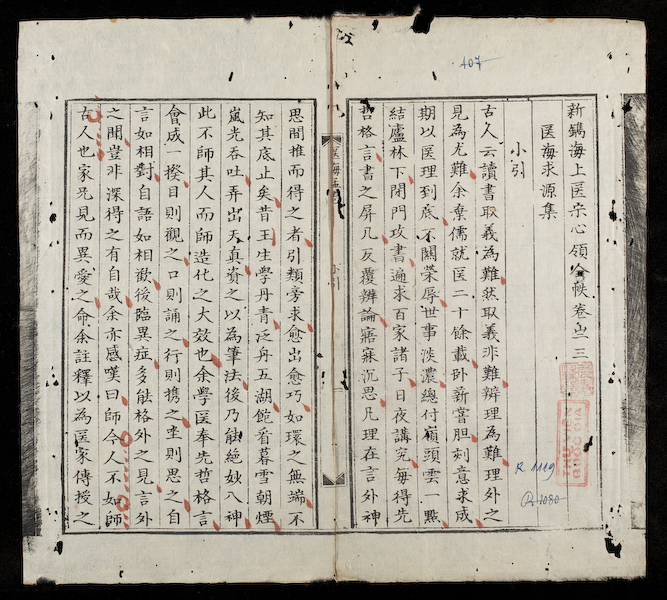 407
新鐫海上医宗心領全帙卷之三
医海求源集
小引
古人云讀書取義為難然取義非難辨理為難理外之
見為尤難余棄儒就医二十餘載卧薪嘗胆刻意求成
期以医理到底不關榮辱世事淡濃總付嶺頭雲一點
結廬林下閉門攻書遍求百家諸子日夜講究每得先
哲格言書之屏几反覆辨論寤寐沉思凡理在言外神
R.1119
R.1080
THƯ VIỆN
QUỐC GIA
医海求源
小引
思間推而得之者引類旁求愈出愈巧如環之無端不
知其底止矣昔王生學丹青泛舟五湖飽看暮雪朝煙
嵐光吞吐弄出天真資之以為筆法後乃能絶妙入神
此不師其人而師造化之大效也余學医奉先哲格言
會成一揆目則觀之口則誦之行則携之坐則思之自
言如相對自語如相歡後臨異症多能格外之見言外
之聞豈非深得之有自哉余亦感嘆曰師今人不如師
古人也家兄見而異愛之命余註釋以為医家傳授之